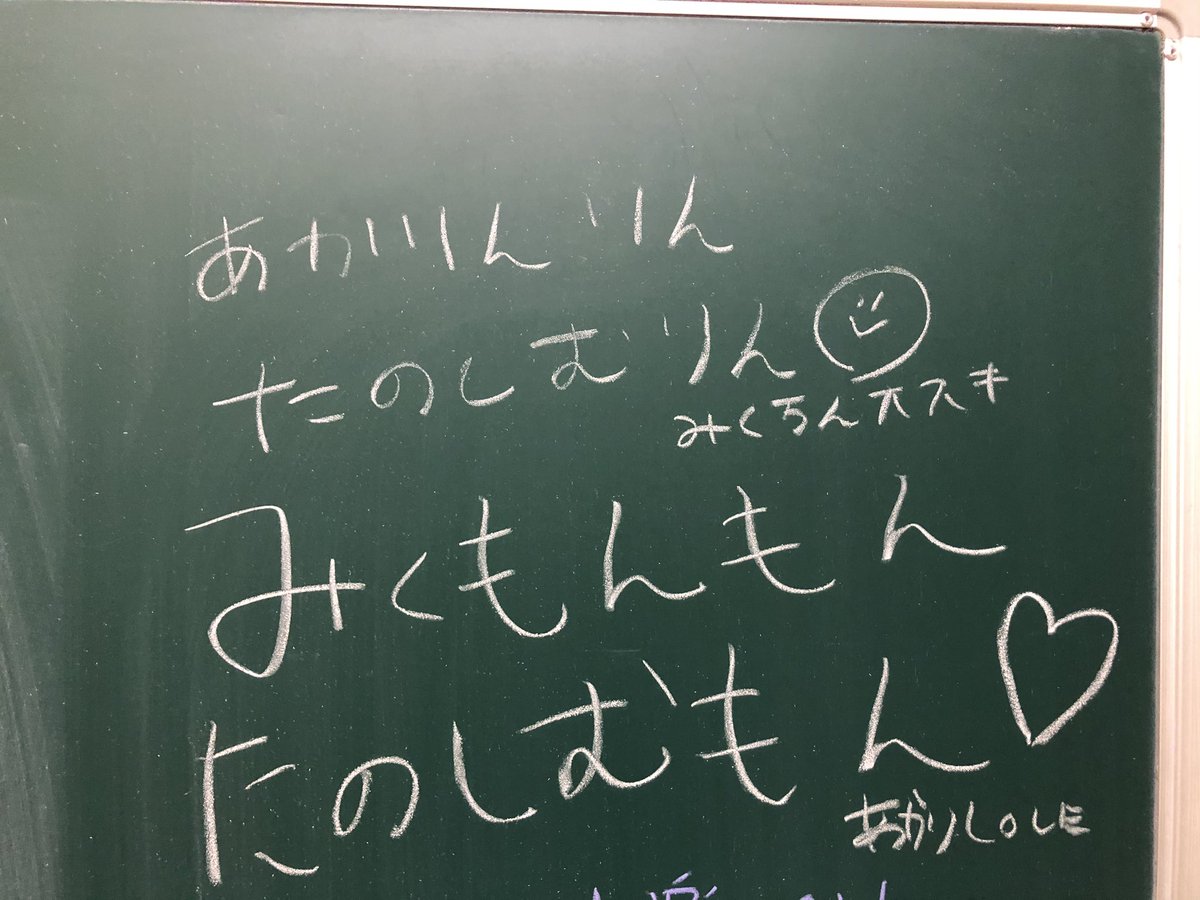 あかりんりん
たのしむりん
みくろん大スキ
みくもんもん
たのしむもん
あかりLOVE